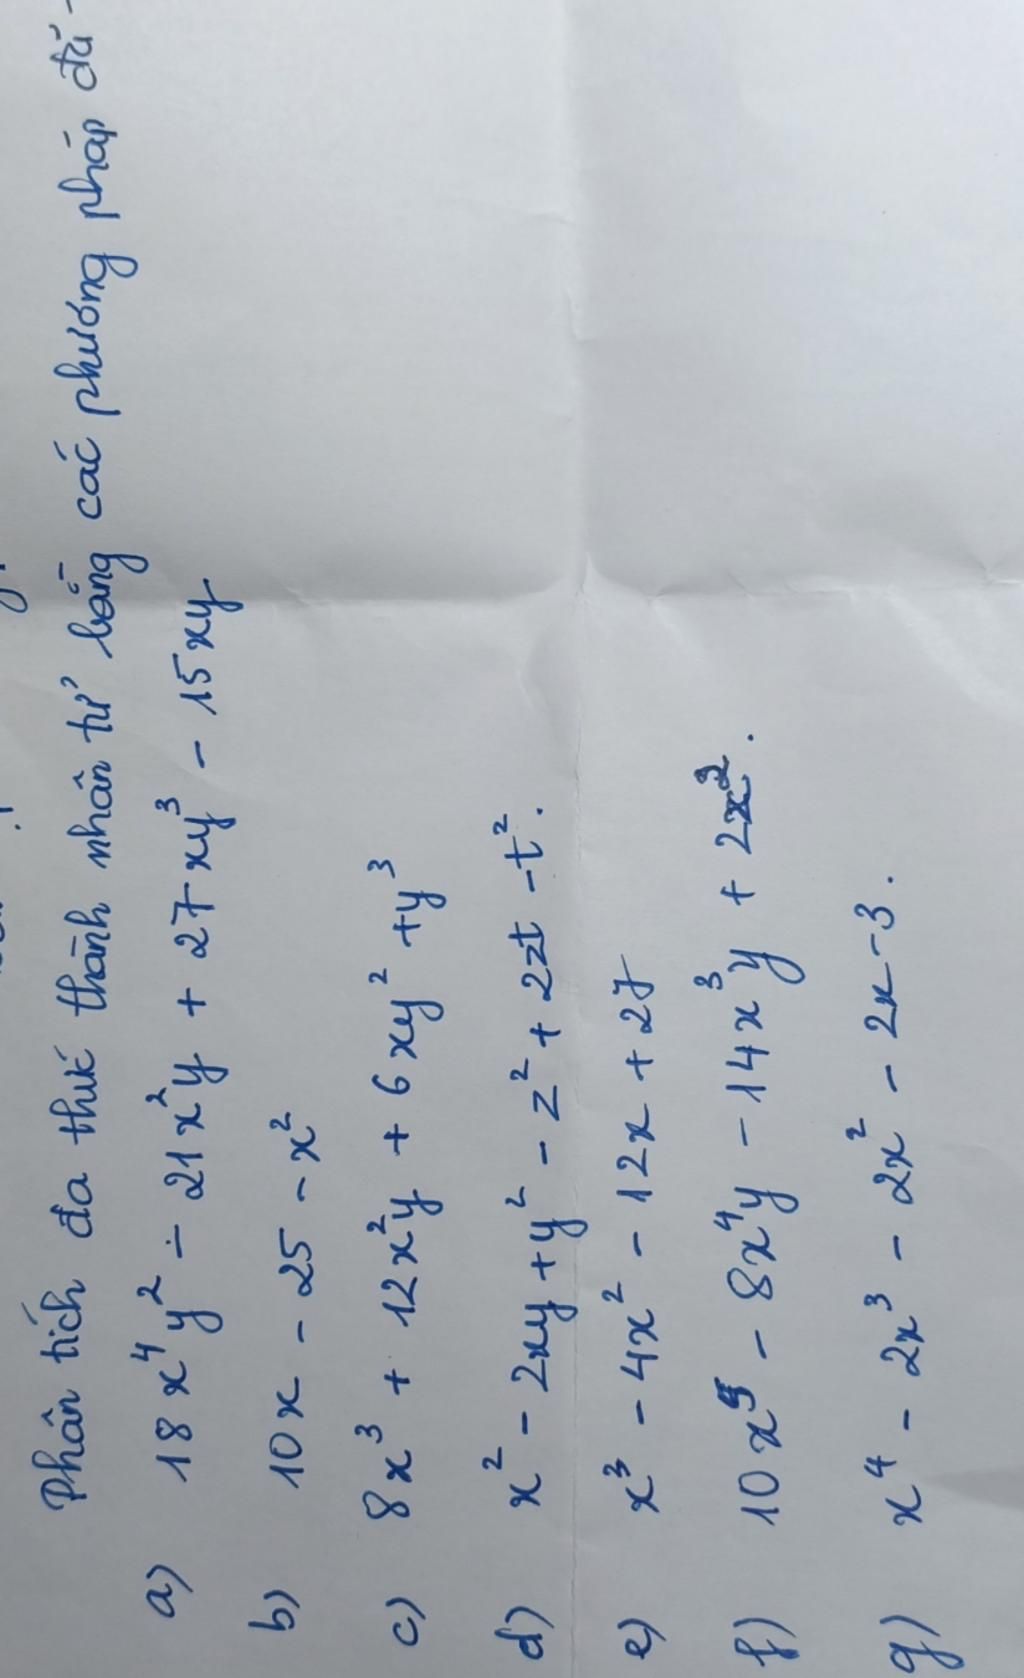 Phân tích đa thức thành nhân tử bằng các phương pháp đã
a) 18x⁴y² - 21x²y + 27xy³ - 15xy
b) 10x - 25 - x²
c) 8x³ + 12x²y + 6xy² + y³
d) x² - 2xy + y² - z² + 2zt - t².
e) x³ - 4x² - 12x + 27
f) 10x⁵ - 8x⁴y - 14x³y + 2x².
g) x⁴ - 2x³ - 2x² - 2x - 3.